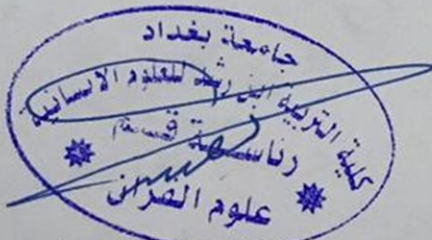 جامعة بغداد
كلية التربية ابن رشد للعلوم الانسانية
رئاسة قسم
علوم القرآن